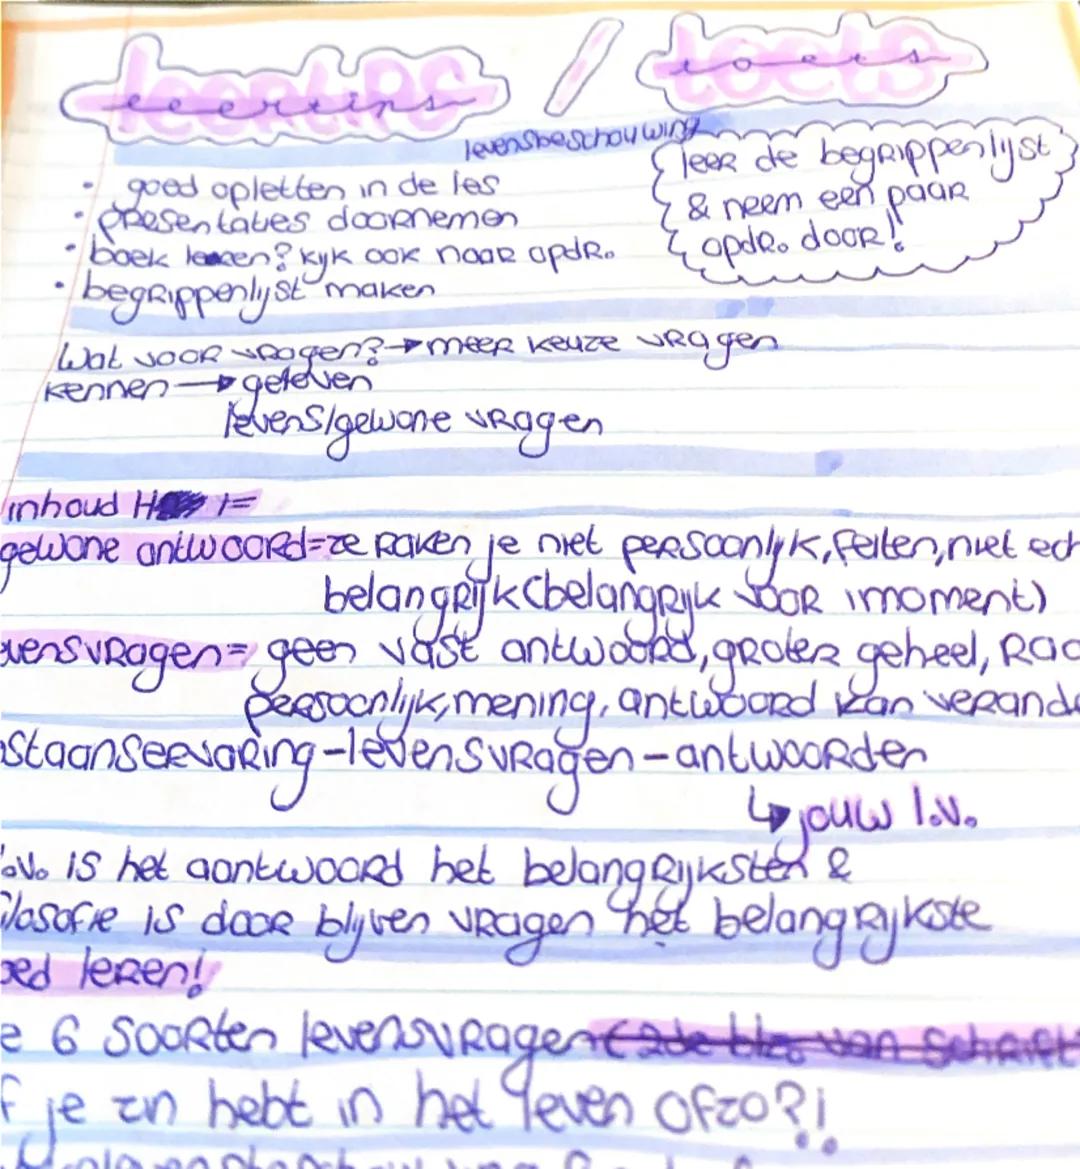 leertips / toets
levensbeschouwing
leer de begrippenlijst
& neem een paar
opdr. door!
• goed opletten in de les
• presentaties doornemen
• boek lezen? kijk ook naar opdr.
• begrippenlijst maken
Wat voor vragen? → meer keuze vragen
kennen → geleven
levens/gewone vragen
inhoud H 1=
gewone antwoord=ze raken je niet persoonlijk, feiten, niet ech
belangrijk (belangrijk voor 1moment)
evensvragen= geen vast antwoord, groter geheel, raa
persoonlijk, mening, antwoord kan verande
staanservaring-levensvragen-antwoorden
↳ jouw l.v.
l.v. is het aantwoord het belangrijksten &
ilosofie is door blijven vragen het belangrijkste
oed leren!
e 6 soorten levensvragen (2de blz van schrift
f je zin hebt in het leven ofzo?!